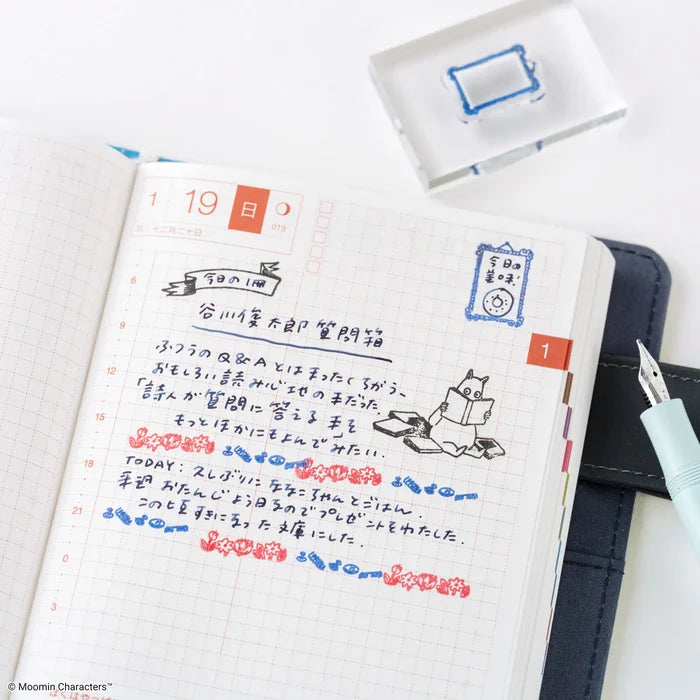 1 19 日
019
十二月二十日
今日の1冊
今日の
美味
谷川俊太郎 質問箱
ふつうのQ&Aとはまったくちがう、
おもしろい読み心地の本だった。
「詩人が質問に答える」本を
もっとほかにもよんでみたい。
TODAY: 久しぶりにななこちゃんとごはん。
来週おたんじょう日なのでプレゼントをわたした。
すきになった文庫にした。
6
9
12
15
18
21
0
3
1
© Moomin Characters™